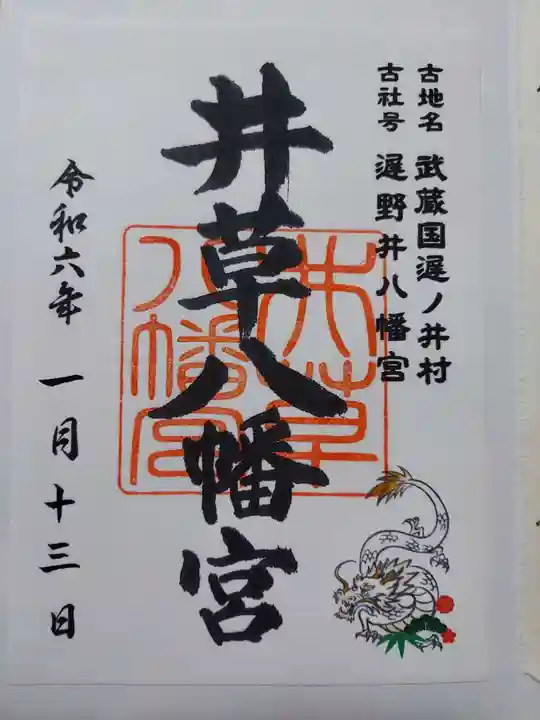 古地名 武蔵国遅ノ井村
古社号 遅野井八幡宮
井草八幡宮
井草
八幡宮
令和六年 一月十三日